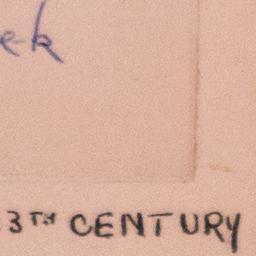 e-k
3TH CENTURY